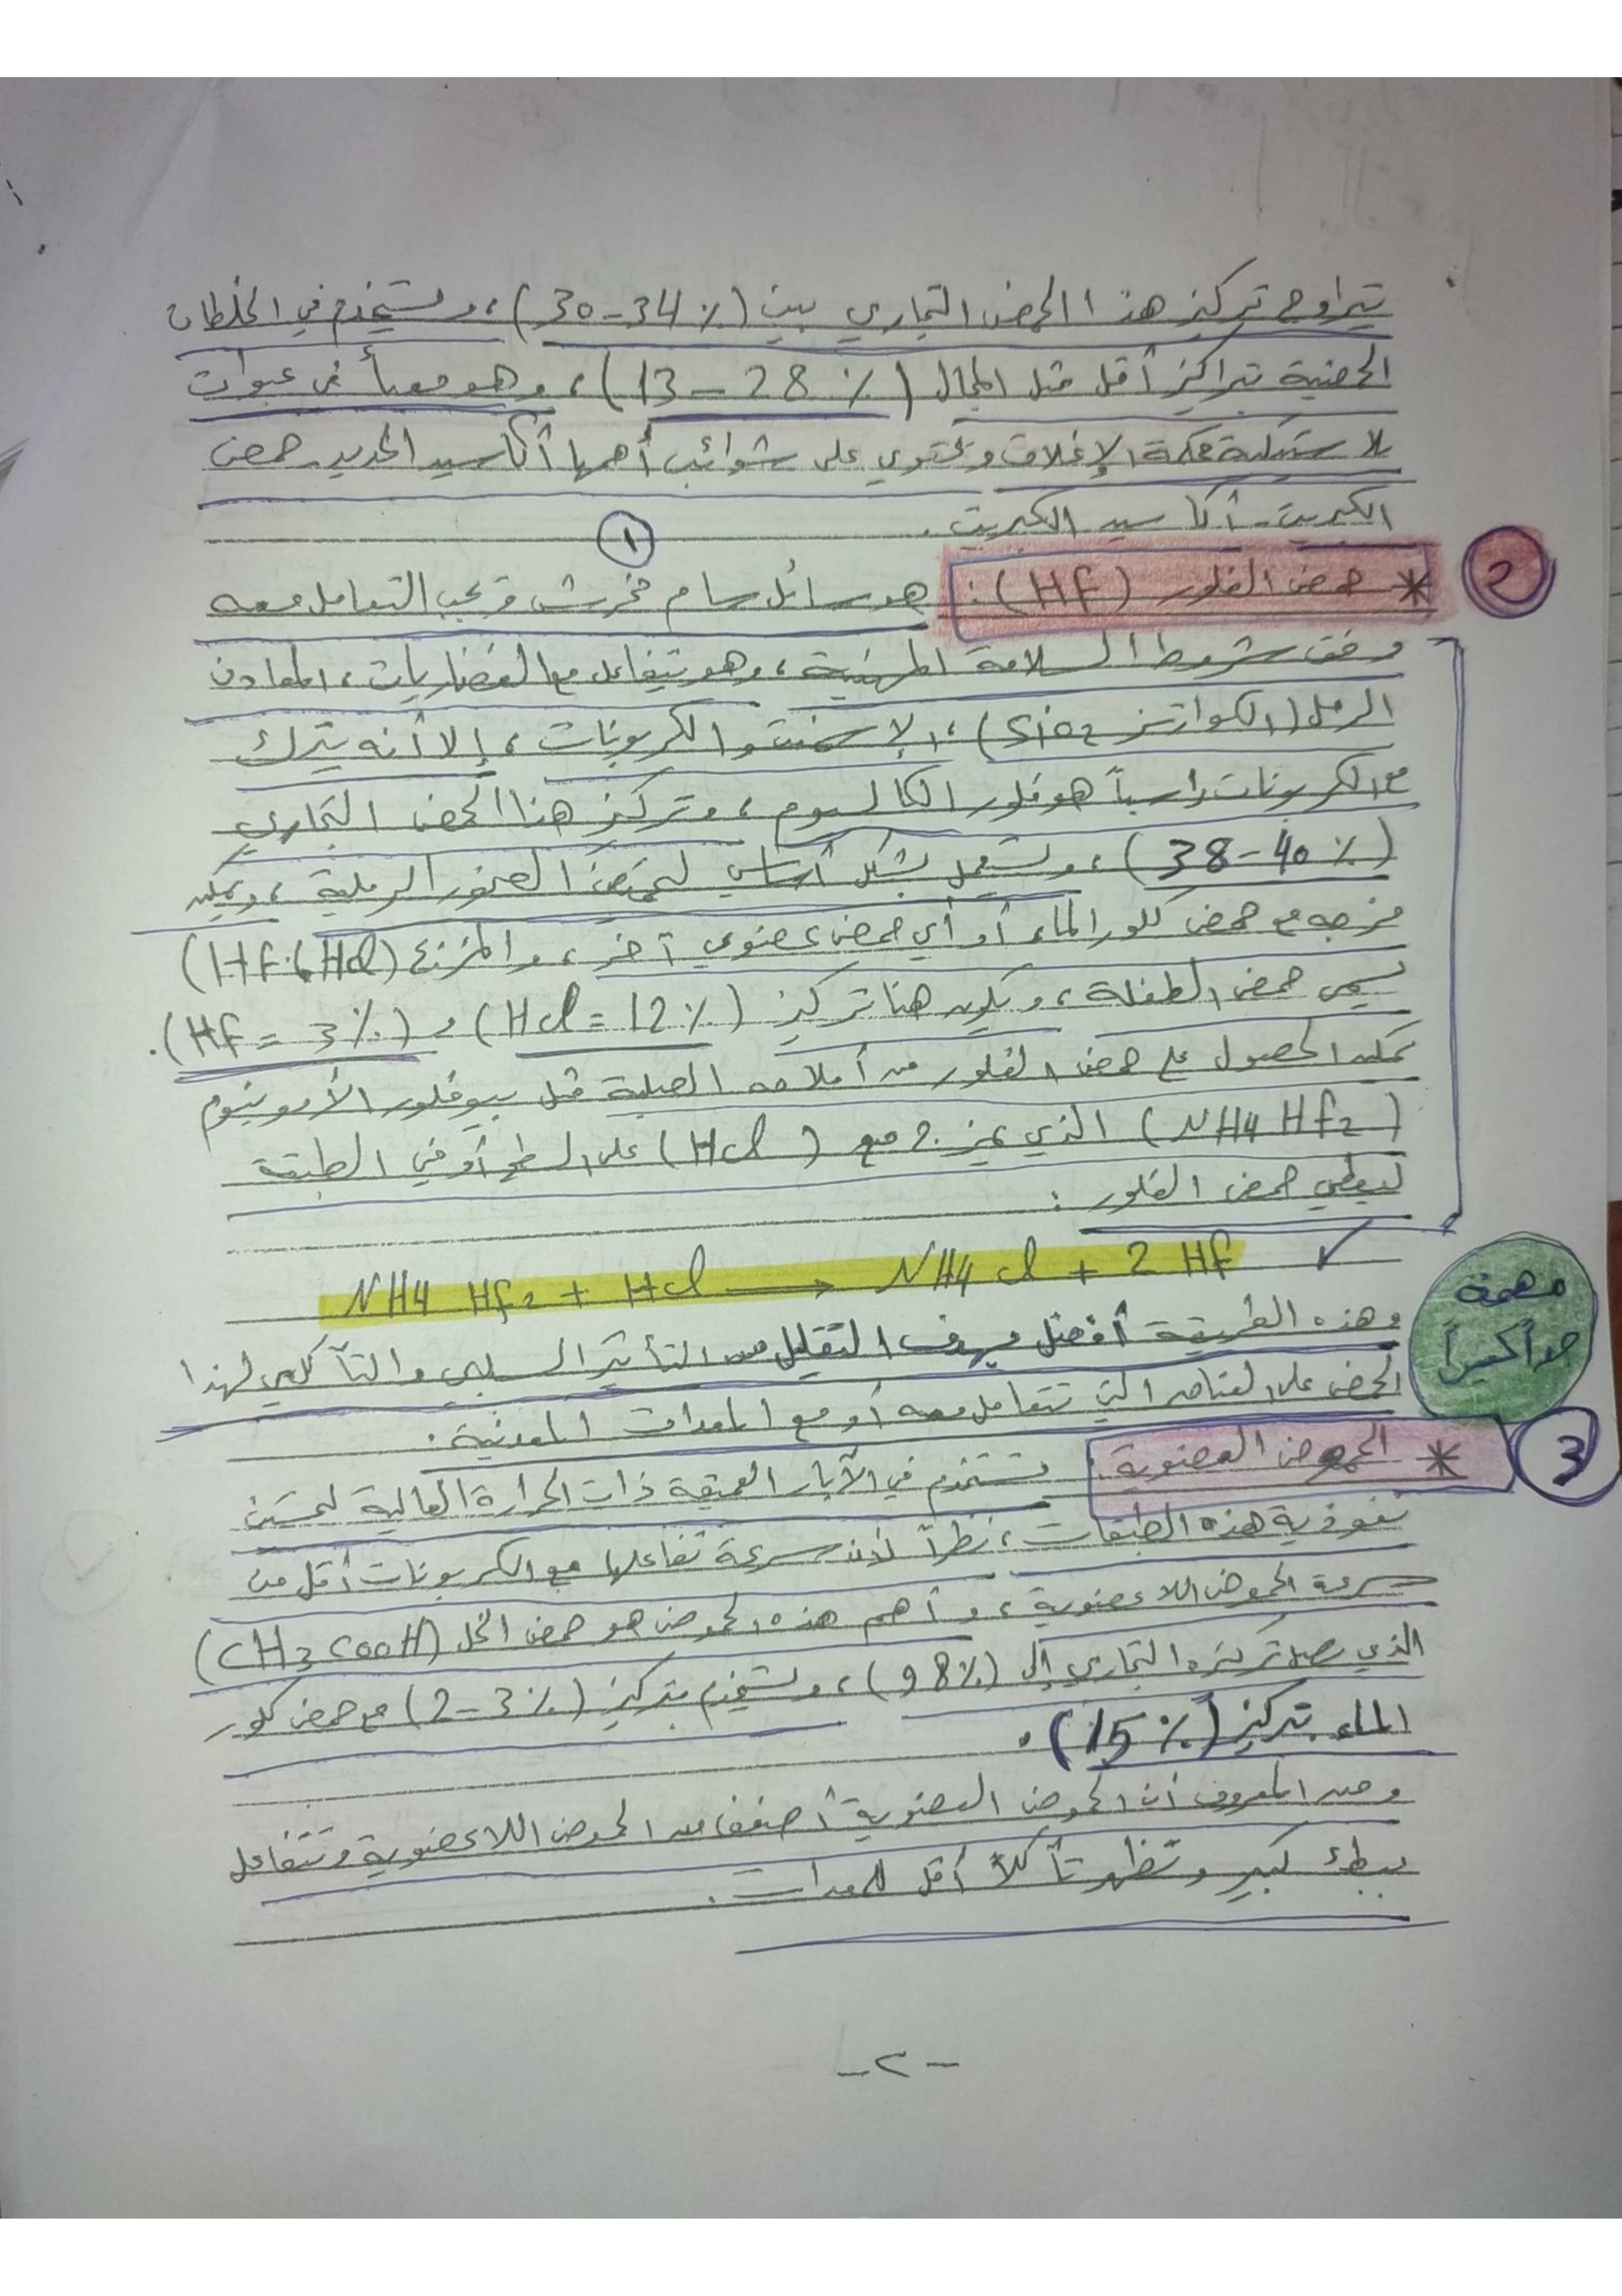 يتراوح تركيز هذا الحمض التجاري بين (30-34%)، ويستخدم في الخلطات
الحمضية بتراكيز أقل مثل المجال (13-28%)، وهو معبأ في عبوات
بلاستيكية محكمة الإغلاق وتحتوي على شوائب أهمها أكاسيد الحديد - حمض
الكبريت - أكاسيد الكبريت.
1
2
* حمض الفلور (HF): هو سائل سام مخرش ويجب التعامل معه
وفق شروط السلامة المهنية، وهو يتفاعل مع الغضاريات، المعادن
الرمل (الكوارتز SiO2)، الإسمنت والكربونات، إلا أنه يترك
مع الكربونات راسباً هو فلور الكالسيوم، وتركيز هذا الحمض التجاري
(38-40%)، ويستعمل بشكل أساسي لتحميض الصخور الرملية، ويمكن
مزجه مع حمض كلور الماء أو أي حمض عضوي آخر، والمزيج (HF، HCl)
يسمى حمض الطفلة، ويكون هنا تركيز (HCl = 12%) و (HF = 3%).
يمكن الحصول على حمض الفلور من أملاحه الصلبة مثل بيوفلور الأمونيوم
(NH4 HF2) الذي يمزج مع (HCl) على السطح أو في الطبقة
ليعطي حمض الفلور:
NH4 HF2 + HCl → NH4 Cl + 2 HF ✓
مهمة
جداً كثيراً
وهذه الطريقة أفضل بهدف التقليل من التأثير السلبي والتآكلي لهذا
الحمض على العناصر التي تتعامل معه أو مع المعدات المعدنية.
3
* الحموض العضوية: تستخدم في الآبار العميقة ذات الحرارة العالية لتحسين
نفوذية هذه الطبقات، نظراً لأن سرعة تفاعلها مع الكربونات أقل من
سرعة الحموض اللاعضوية، وأهم هذه الحموض هو حمض الخل (CH3COOH)
الذي يصل تركيزه التجاري إلى (98%)، ويستخدم بتركيز (2-3%) مع حمض كلور
الماء بتركيز (15%).
ومن المعروف أن الحموض العضوية أضعف من الحموض اللاعضوية وتتفاعل
ببطء كبير وتظهر تآكلاً أقل للمعدات.
-٢-